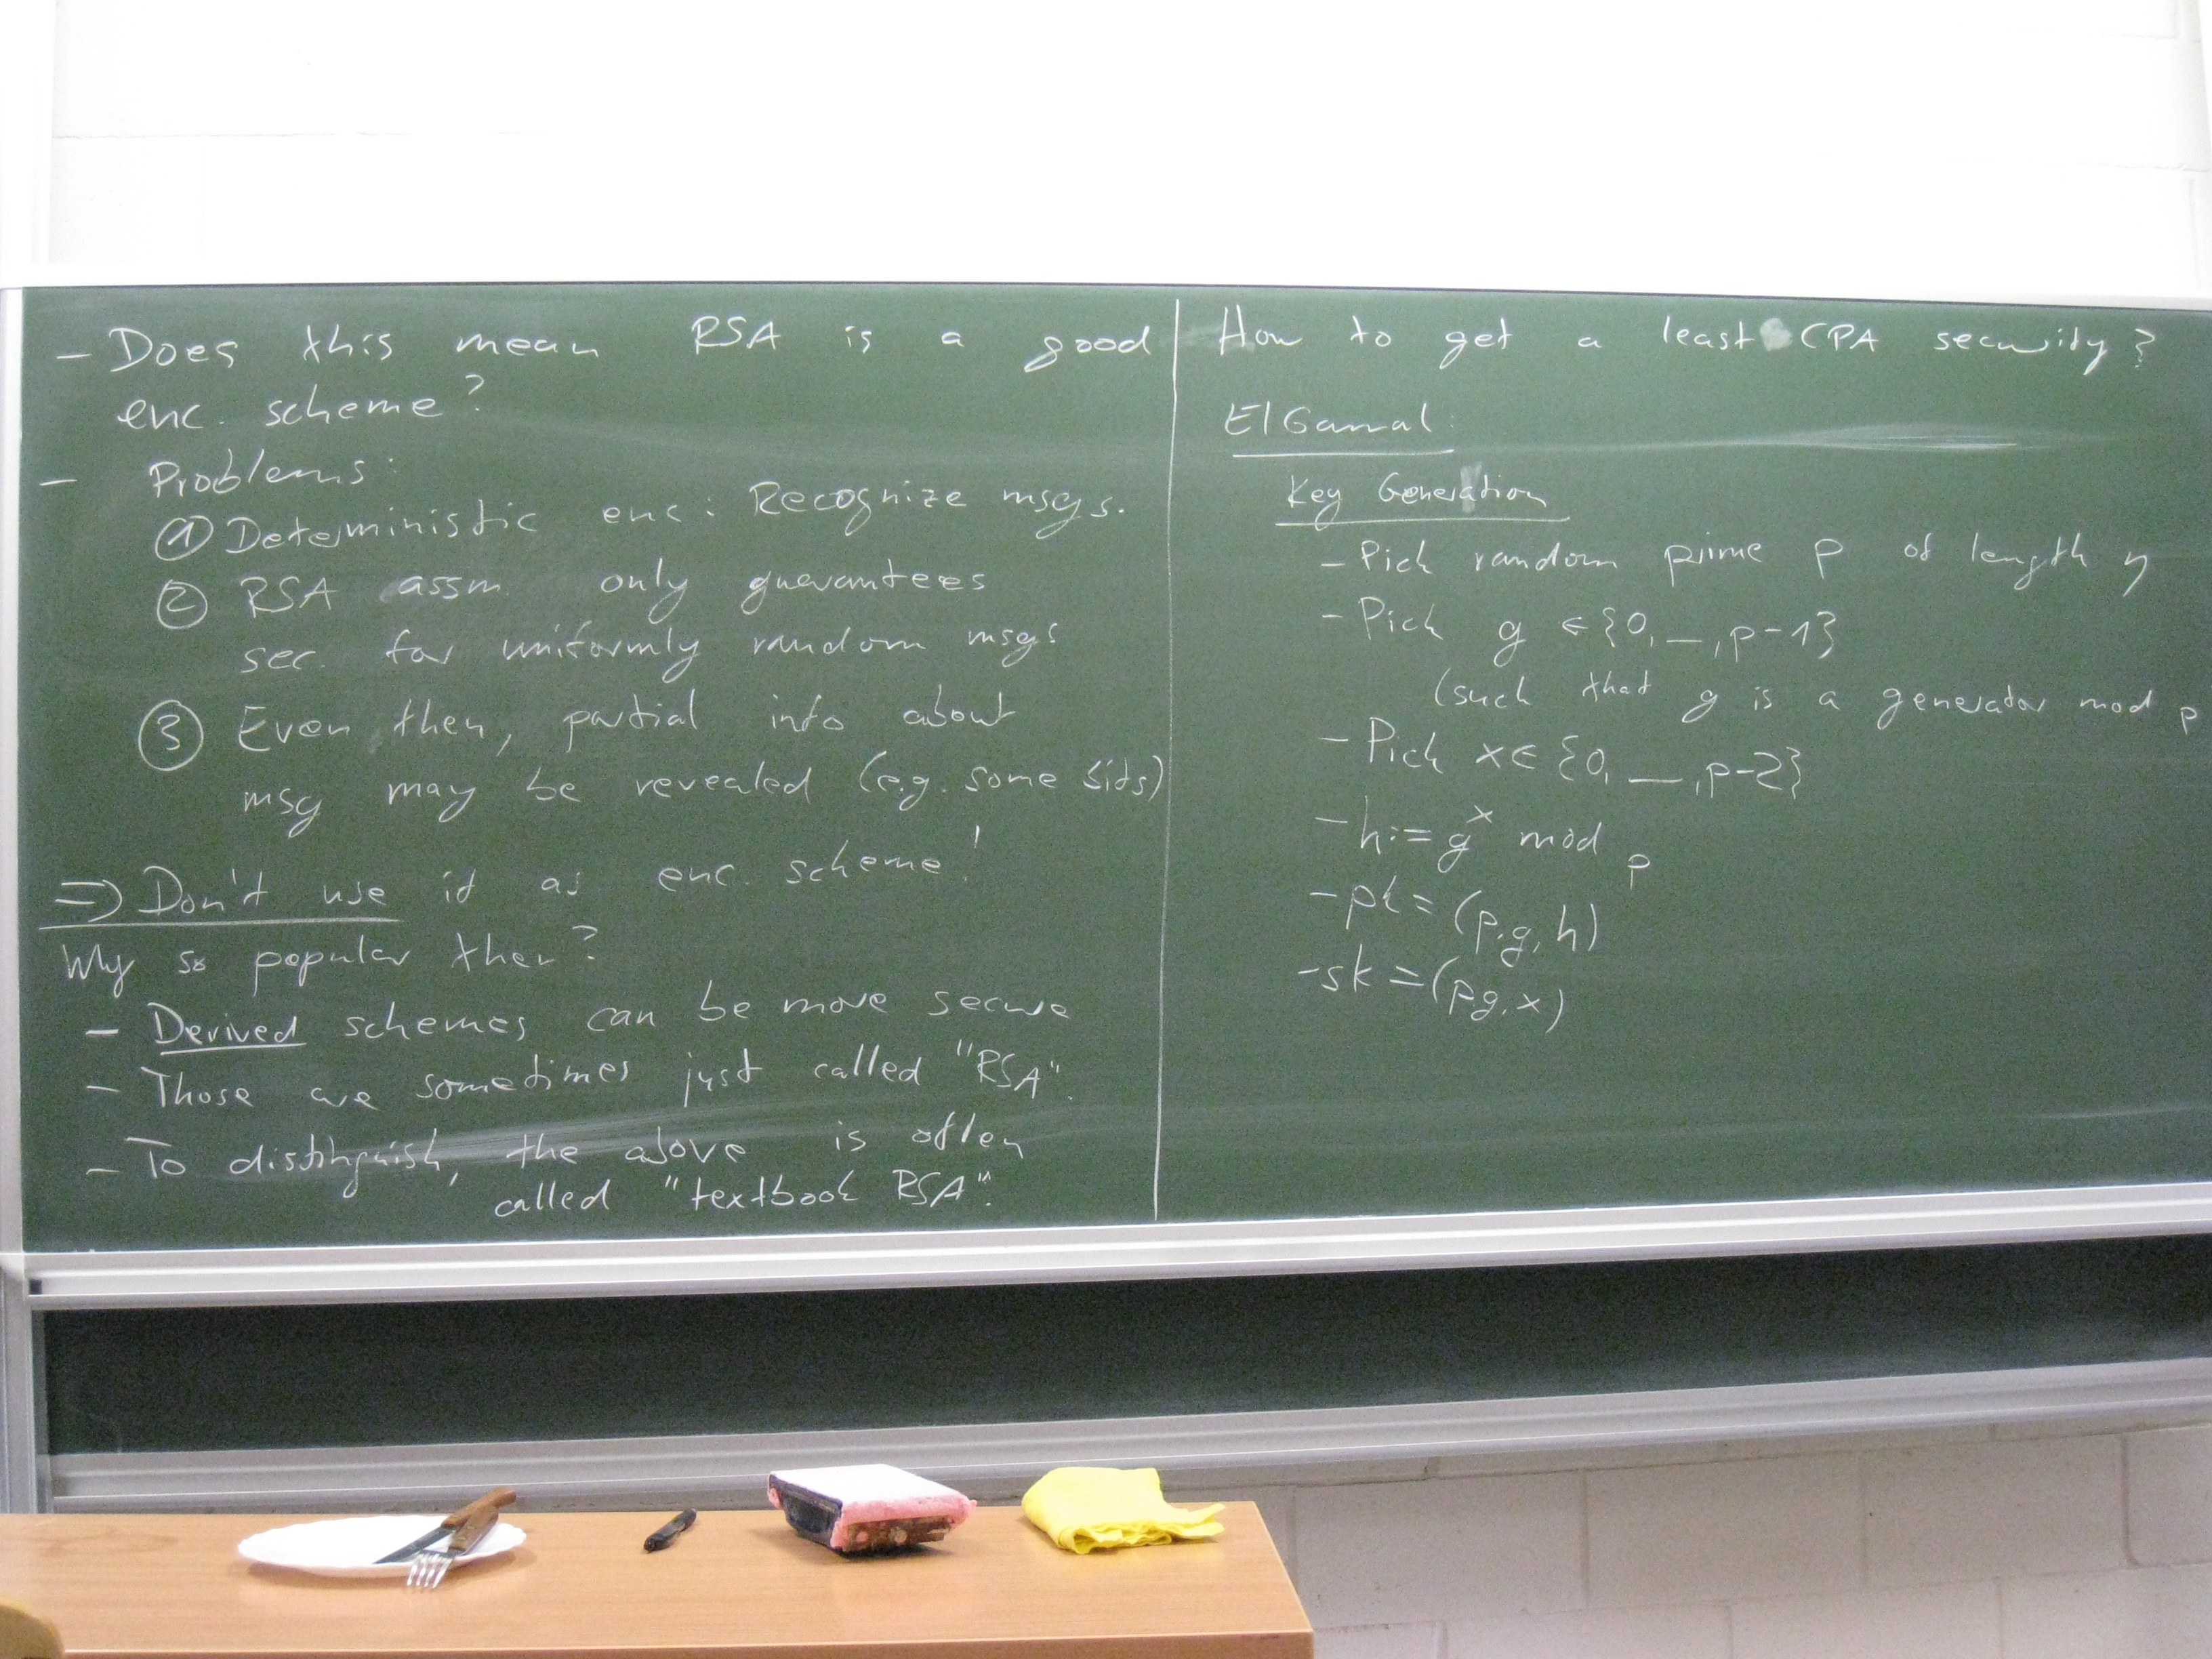 - Does this mean RSA is a good
enc. scheme?
- Problems:
① Deterministic enc: Recognize msgs.
② RSA assm. only guarantees
sec. for uniformly random msgs
③ Even then, partial info about
msg may be revealed (e.g. some bits)
=> Don't use it as enc. scheme!
Why so popular then?
- Derived schemes can be more secure
- Those are sometimes just called "RSA".
- To distinguish, the above is often
called "textbook RSA".
How to get a least CPA security?
ElGamal:
Key Generation
- Pick random prime p of length η
- Pick g ∈ {0, _ , p-1}
(such that g is a generator mod p
- Pick x ∈ {0, _ , p-2}
- h := g^x mod p
- pk = (p, g, h)
- sk = (p, g, x)